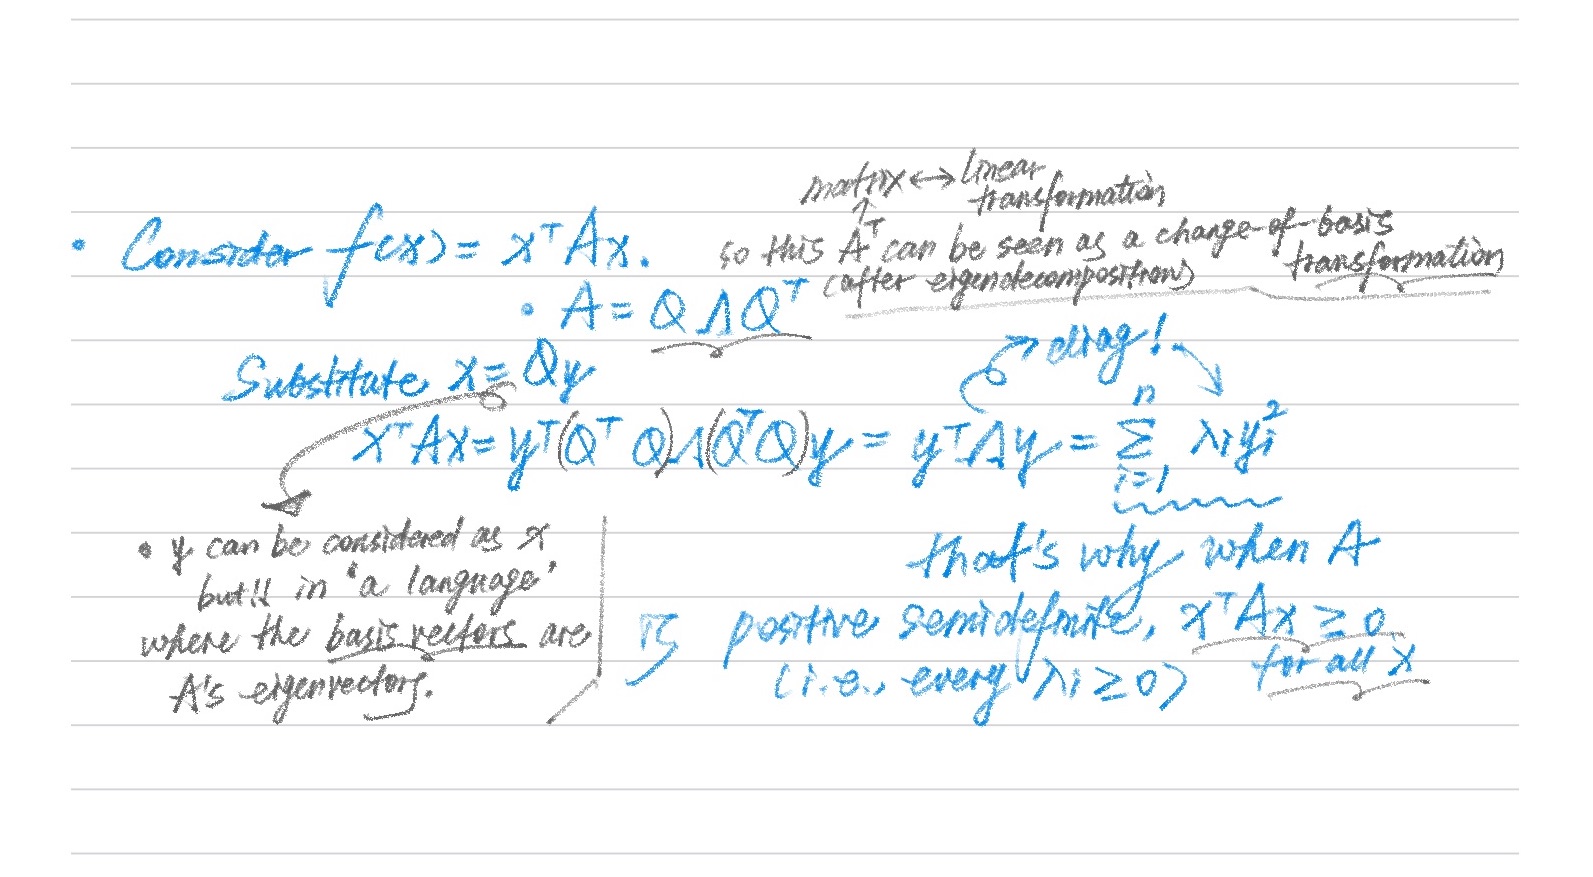 matrix ↔ linear
transformation
• Consider f(x) = xᵀAx.
↑
so this Aᵀ can be seen as a change-of-basis
transformation
(after eigendecomposition)
• A = QΛQᵀ
→ diag!
Substitute x = Qy
xᵀAx = yᵀ(QᵀQ)Λ(QᵀQ)y = yᵀΛy = Σⁿᵢ₌₁ λᵢyᵢ²
• y can be considered as x
but!! in "a language"
where the basis vectors are
A's eigenvectors.
that's why when A
is positive semidefinite, xᵀAx ≥ 0
(i.e., every λᵢ ≥ 0) for all x